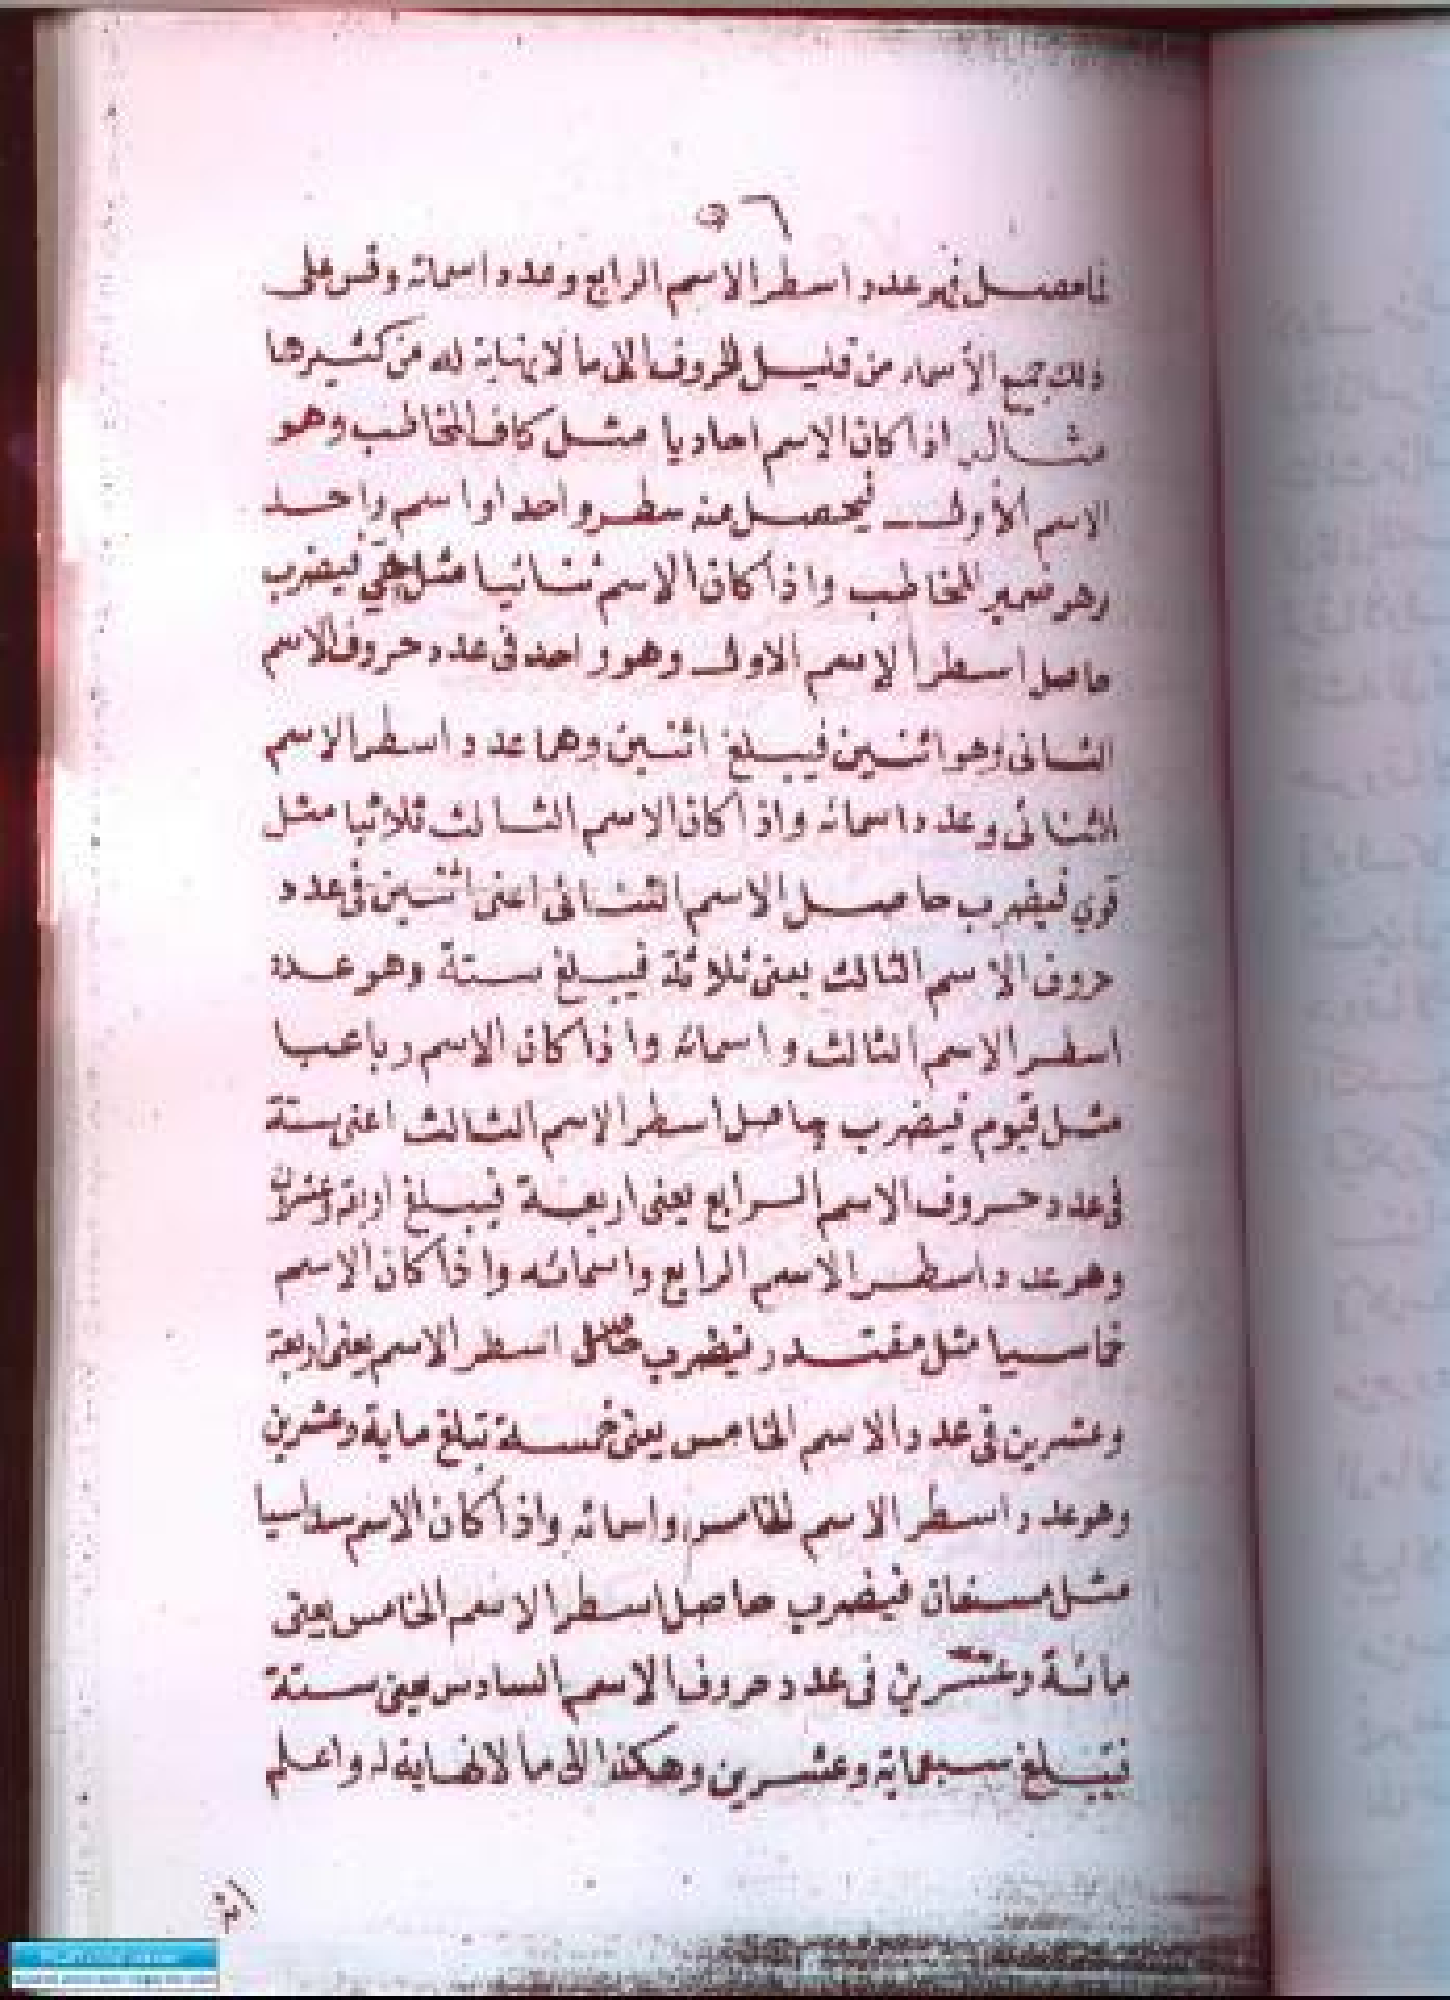 ٥٦
فما حصل فهو عدد اسطر الاسم الرابع وعدد اسمائه وقس على
ذلك جميع الأسماء من قليل الحروف الى ما لا نهاية له من كثيرها
مثال اذا كان الاسم احاديا مثل كاف المخاطب وهو
الاسم الأول فيحصل منه سطر واحد او اسم واحد
وهو ضمير المخاطب واذا كان الاسم ثنائيا مثل حي فيضرب
حاصل اسطر الاسم الاول وهو واحد في عدد حروف الاسم
الثانى وهو اثنين فيبلغ اثنين وهما عدد اسطر الاسم
الثنائى وعدد اسمائه واذا كان الاسم الثالث ثلاثيا مثل
قوي فيضرب حاصل الاسم الثنائى اعنى اثنين فى عدد
حروف الاسم الثالث يعنى ثلاثة فيبلغ ستة وهو عدد
اسطر الاسم الثالث واسمائه واذا كان الاسم رباعيا
مثل قيوم فيضرب حاصل اسطر الاسم الثالث اعنى ستة
فى عدد حروف الاسم الرابع يعنى اربعة فيبلغ اربعة وعشرين
وهو عدد اسطر الاسم الرابع واسمائه واذا كان الاسم
خماسيا مثل مقتدر فيضرب حاصل اسطر الاسم يعنى اربعة
وعشرين فى عدد الاسم الخامس يعنى خمسة تبلغ ماية وعشرين
وهو عدد اسطر الاسم الخامس واسمائه واذا كان الاسم سداسيا
مثل فيضرب حاصل اسطر الاسم الخامس يعنى
مائة وعشرين فى عدد حروف الاسم السادس يعنى ستة
تبلغ سبعماية وعشرين وهكذا الى ما لا نهاية له واعلم